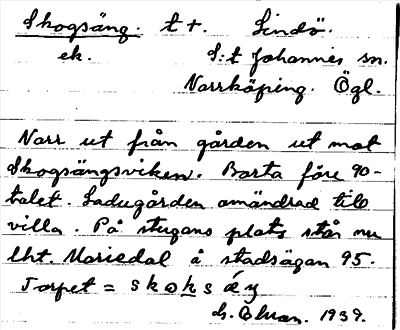 Skogsäng. t +. Lindö.
ek. S:t Johannes sn.
Norrköping. Ögl.
Norr ut från gården ut mot
Skogsängsviken. Borta före 90-
talet. Ladugården omändrad till
villa. På stugans plats står nu
lht. Mariedal å stadsägan 95.
Torpet = skoks
1939.